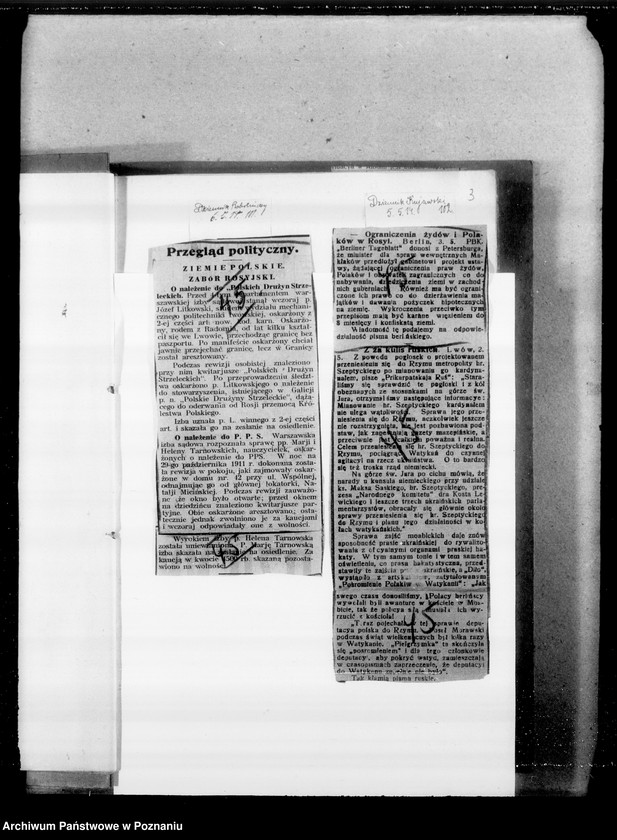 3
6. 5. 14
5. 5. 14. 102
Przegląd polityczny.
ZIEMIE POLSKIE.
ZABÓR ROSYJSKI.
O należenie do „Polskich Drużyn Strze-
leckich. Przed departamentem war-
szawskiej izby stanął wczoraj p.
Józef Litkowski, mechani-
cznego politechniki lwowskiej, oskarżony z
2-ej części art. now. kod. karn. Oskarżo-
ny, rodem z Radomia, od lat kilku kształ-
cił się we Lwowie, przechodząc granicę bez
paszportu. Po manifeście oskarżony chciał
jawnie przejechać granicę, lecz w Granicy
został aresztowany.
Podczas rewizji osobistej znaleziono
przy nim kwitarjusze „Polskich Drużyn
Strzeleckich". Po przeprowadzeniu śledz-
twa oskarżono p. Litkowskiego o należenie
do stowarzyszenia, istniejącego w Galicji
p. n. „Polskie Drużyny Strzeleckie", dążą-
cego do oderwania od Rosji przemocą Kró-
lestwa Polskiego.
Izba uznała p. L. winnego z 2-ej części
art. i skazała go na zesłanie na osiedlenie.
O należenie do P. P. S. Warszawska
izba sądowa rozpoznała sprawę pp. Marji i
Heleny Tarnowskich, nauczycielek, oskar-
żonych o należenie do PPS. W noc na
29-go października 1911 r. dokonana zosta-
ła rewizja w pokoju, jaki zajmowały oskar-
żone w domu nr. 42 przy ul. Wspólnej,
odnajmując go od głównej lokatorki, Na-
talji Mielińskiej. Podczas rewizji zauważo-
no, że okno było otwarte; przed oknem
na dziedzińcu znaleziono kwitarjusze par-
tyjne. Obie oskarżone aresztowano; osta-
tecznie jednak zwolniono je za kaucjami
i wczoraj odpowiadały one z wolności.
Wyrokiem izby p. Helena Tarnowska
została uniewinniona, P. Marję Tarnowską
izba skazała na zesłanie na osiedlenie. Za
kaucją w kwocie 1500 rb. skazaną pozosta-
wiono na wolności.
43
45
— Ograniczenia żydów i Pola-
ków w Rosyi. Berlin, 3. 5. PBK.
„Berliner Tageblatt" donosi z Petersburga,
że minister dla spraw wewnętrznych Ma-
kłaków przedłożył gabinetowi projekt usta-
wy, dążącej do ograniczenia praw żydów,
Polaków i obywateli zagranicznych co do
nabywania, dziedziczenia ziemi w zachod-
nich guberniach. Również ma być ograni-
czone ich prawo co do dzierżawienia ma-
jątków i dawania pożyczek hipotecznych
na ziemię. Wykroczenia przeciwko tym
przepisom mają być karane więzieniem do
8 miesięcy i konfiskatą ziemi.
Wiadomość tę podajemy na odpowie-
dzialność pisma berlińskiego.
Z za kulis ruskich. Lwów, 2.
5. Z powodu pogłosek o projektowanem
przeniesieniu się do Rzymu metropolity hr.
Szeptyckiego po mianowaniu go kardyna-
łem, pisze „Prikarpatskaja Ruś": „Stara-
liśmy się sprawdzić te pogłoski i z kół
obeznanych ze stosunkami na górze św.
Jura, otrzymaliśmy następujące informacye:
Mianowanie hr. Szeptyckiego kardynałem
nie ulega wątpliwości. Sprawa jego prze-
niesienia się do Rzymu, aczkolwiek jeszcze
nie rozstrzygnięta, nie jest pozbawiona pod-
staw, jak zapewniają gazety mazepińskie, a
przeciwnie jest całkiem poważna i realna.
Celem przeniesienia się hr. Szeptyckiego do
Rzymu, pociągnięcie Watykanu do czynnej
agitacyi na rzecz ukrainizmu. O to bardzo
się też troska rząd niemiecki.
Na górze św. Jura po cichu mówią, że
narady u konsula niemieckiego przy udziale
ks. Maksa Saskiego, hr. Szeptyckiego, pre-
zesa „Narodnego komiteta" dra Kosta Le-
wickiego i jeszcze trzech ukraińskich parla-
mentarzystów, obracały się głównie około
sprawy przeniesienia się hr. Szeptyckiego
do Rzymu i planu tego działalności w ko-
łach watykańskich."
Sprawa zajść moabickich daje znów
sposobność prasie ukraińskiej do rywalizo-
wania z oficyalnymi organami pruskiej ha-
katy. W tym samym tonie i w tem samem
oświetleniu, co prasa hakatystyczna, przed-
stawiły te zajścia pisma ukraińskie, a „Diło",
wystąpiło z artykułem, zatytułowanym
„Pogromienie Polaków w Watykanie": „Jak
swego czasu donosiliśmy, Polacy berlińscy
wywołali byli awanturę w kościele w Moa-
bicie, tak że policya musiała ich wy-
rzucić z kościoła!
„Teraz pojechała w tej sprawie depu-
tacya polska do Rzymu. Poseł Morawski
podczas świąt wielkanocnych był kilka razy
w Watykanie. „Pielgrzymka" ta skończyła
się „pogromieniem" i dla tego członkowie
deputacyi, aby pokryć wstyd, zamieszczają
w czasopismach zaprzeczenie, że deputacyi
do Watykanu
Tak kłamią pisma ruskie.
45
45
Archiwum Państwowe w Poznaniu